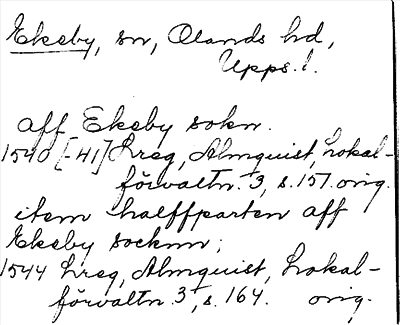 Ekeby, sn, Olands hd,
Upps. l.
aff Ekeby sokn.
1540 [-41] Lreg, Almquist, Lokal-
förvaltn. 3, s. 157. orig.
item halffparten aff
Ekeby socknn;
1544 Lreg, Almquist, Lokal-
förvaltn. 3, s. 164. orig.